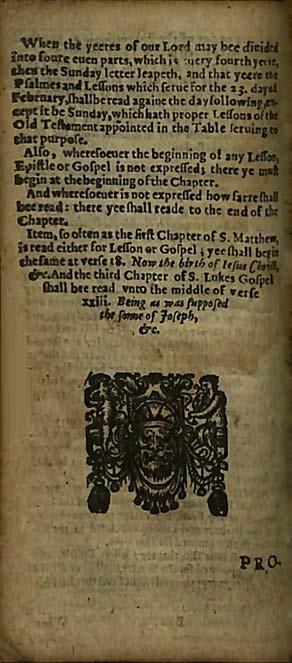 When the yeeres of our Lord may bee diuided
into foure euen parts, which is euery fourth yeere,
then the Sunday letter leapeth, and that yeere the
Psalmes and Lessons which serue for the 23. day of
February, shall be read againe the day following, ex-
cept it be Sunday, which hath proper Lessons of the
Old Testament appointed in the Table seruing to
that purpose.
Also, wheresoeuer the beginning of any Lesson,
Epistle or Gospel is not expressed; there ye must
begin at the beginning of the Chapter.
And wheresoeuer is not expressed how farre shall
bee read: there yee shall reade to the end of the
Chapter.
Item, so often as the first Chapter of S. Matthew,
is read either for Lesson or Gospel; yee shall begin
the same at verse 18. Now the birth of Iesus Christ,
&c. And the third Chapter of S. Lukes Gospel
shall bee read vnto the middle of verse
xxiii. Being as was supposed
the sonne of Joseph,
&c.
PRO-